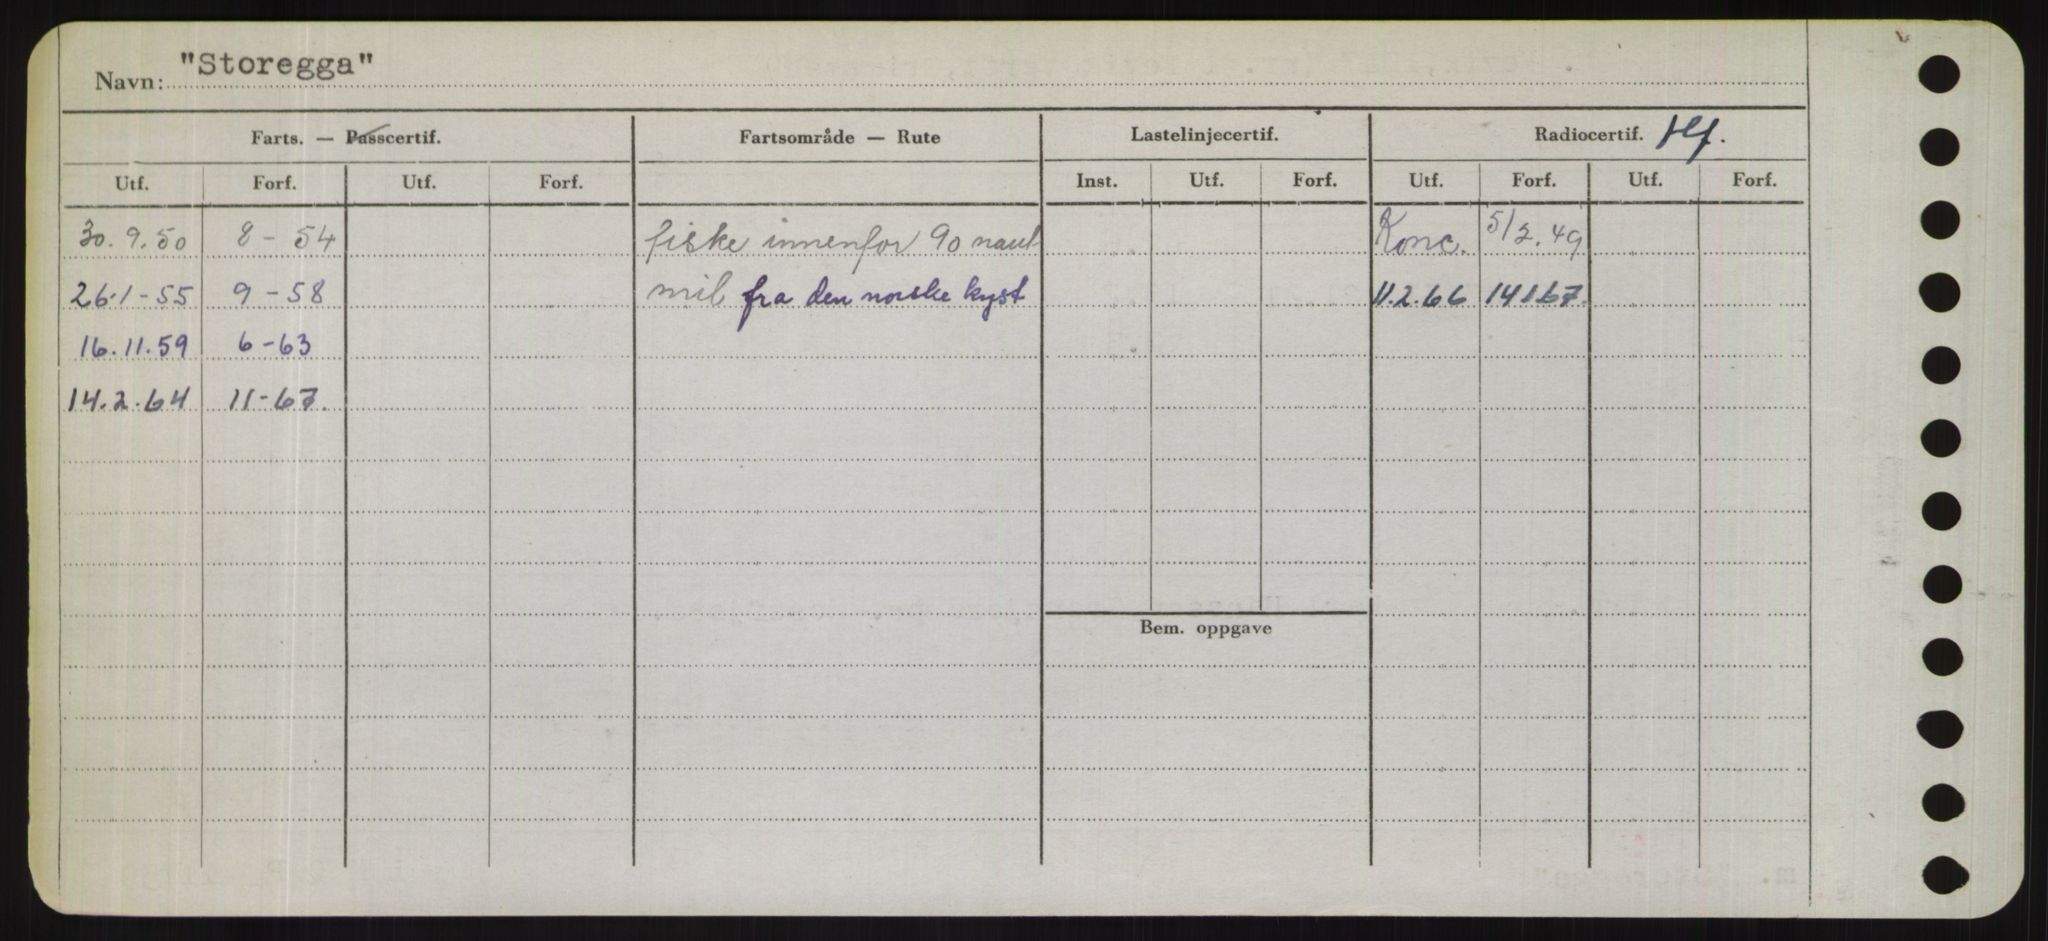 Navn: "Storegga"
Farts. — Passcertif. Fartsområde — Rute Lastelinjecertif. Radiocertif. Hf.
Utf. Forf. Utf. Forf. Inst. Utf. Forf. Utf. Forf. Utf. Forf.
30.9.50 8-54 fiske innenfor 90 naut Konc. 5/2.49
26.1-55 9-58 mil fra den norske kyst 11.2.66
16.11.59 6-63
14.2.64 11-67.
Bem. oppgave